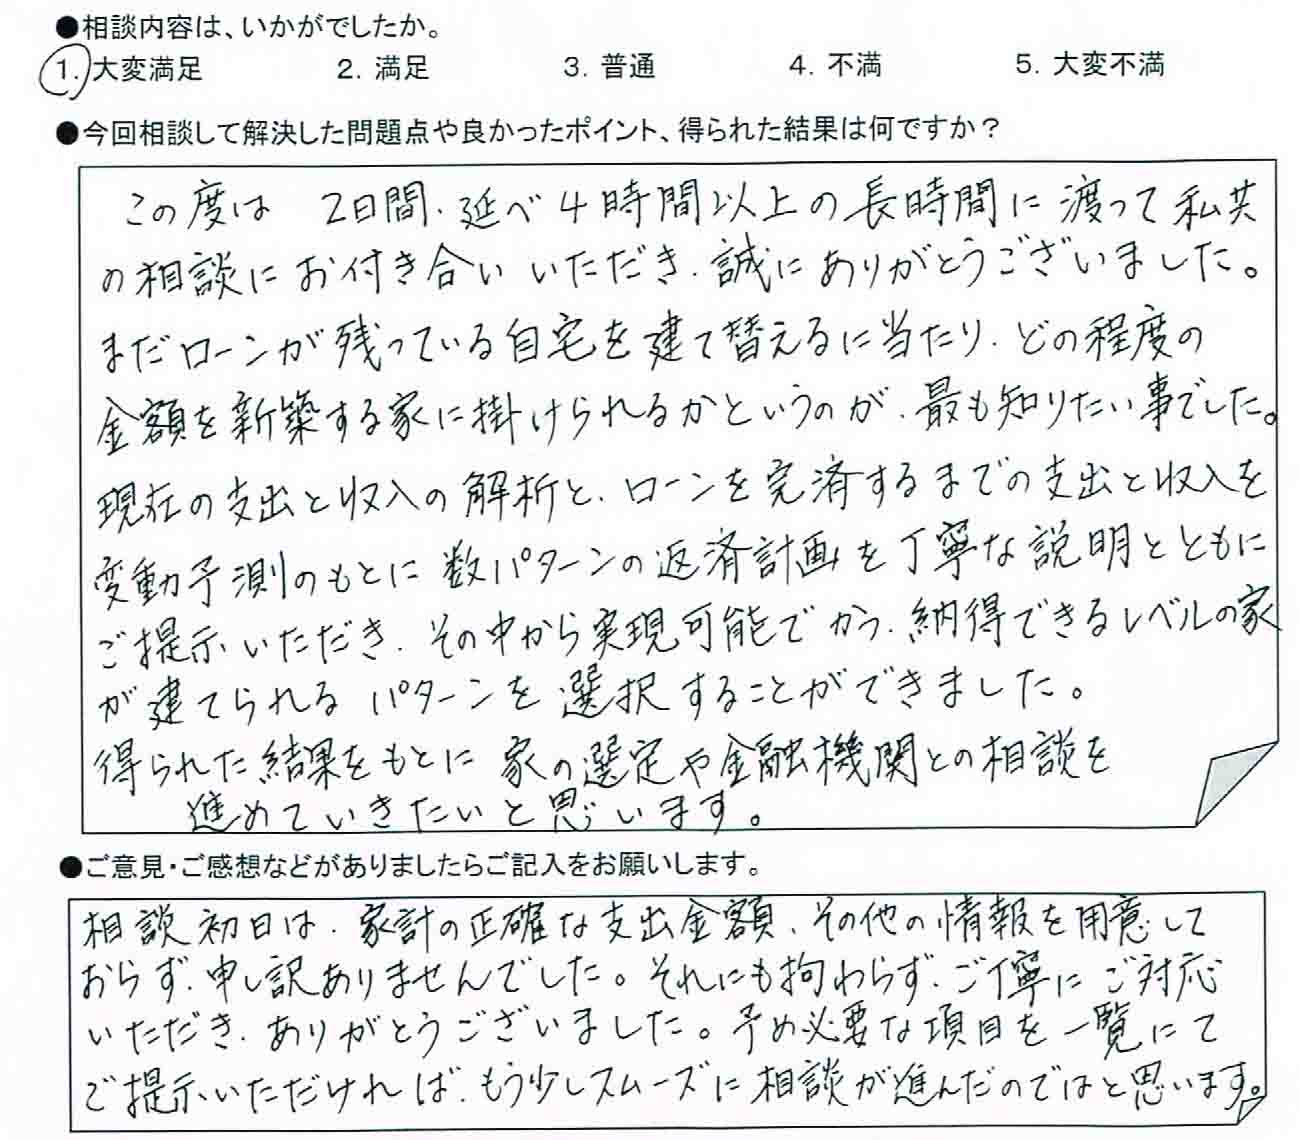 ●相談内容は、いかがでしたか。
1. 大変満足 2. 満足 3. 普通 4. 不満 5. 大変不満
●今回相談して解決した問題点や良かったポイント、得られた結果は何ですか？
この度は 2日間、延べ4時間以上の長時間に渡って私共
の相談にお付き合いいただき、誠にありがとうございました。
まだローンが残っている自宅を建て替えるに当たり、どの程度の
金額を新築する家に掛けられるかというのが、最も知りたい事でした。
現在の支出と収入の解析と、ローンを完済するまでの支出と収入を
変動予測のもとに数パターンの返済計画を丁寧な説明とともに
ご提示いただき、その中から実現可能でかつ、納得できるレベルの家
が建てられるパターンを選択することができました。
得られた結果をもとに家の選定や金融機関との相談を
進めていきたいと思います。
●ご意見・ご感想などがありましたらご記入をお願いします。
相談初日は、家計の正確な支出金額、その他の情報を用意して
おらず、申し訳ありませんでした。それにも拘わらず、ご丁寧にご対応
いただき、ありがとうございました。予め必要な項目を一覧にて
ご提示いただければ、もう少しスムーズに相談が進んだのではと思います。